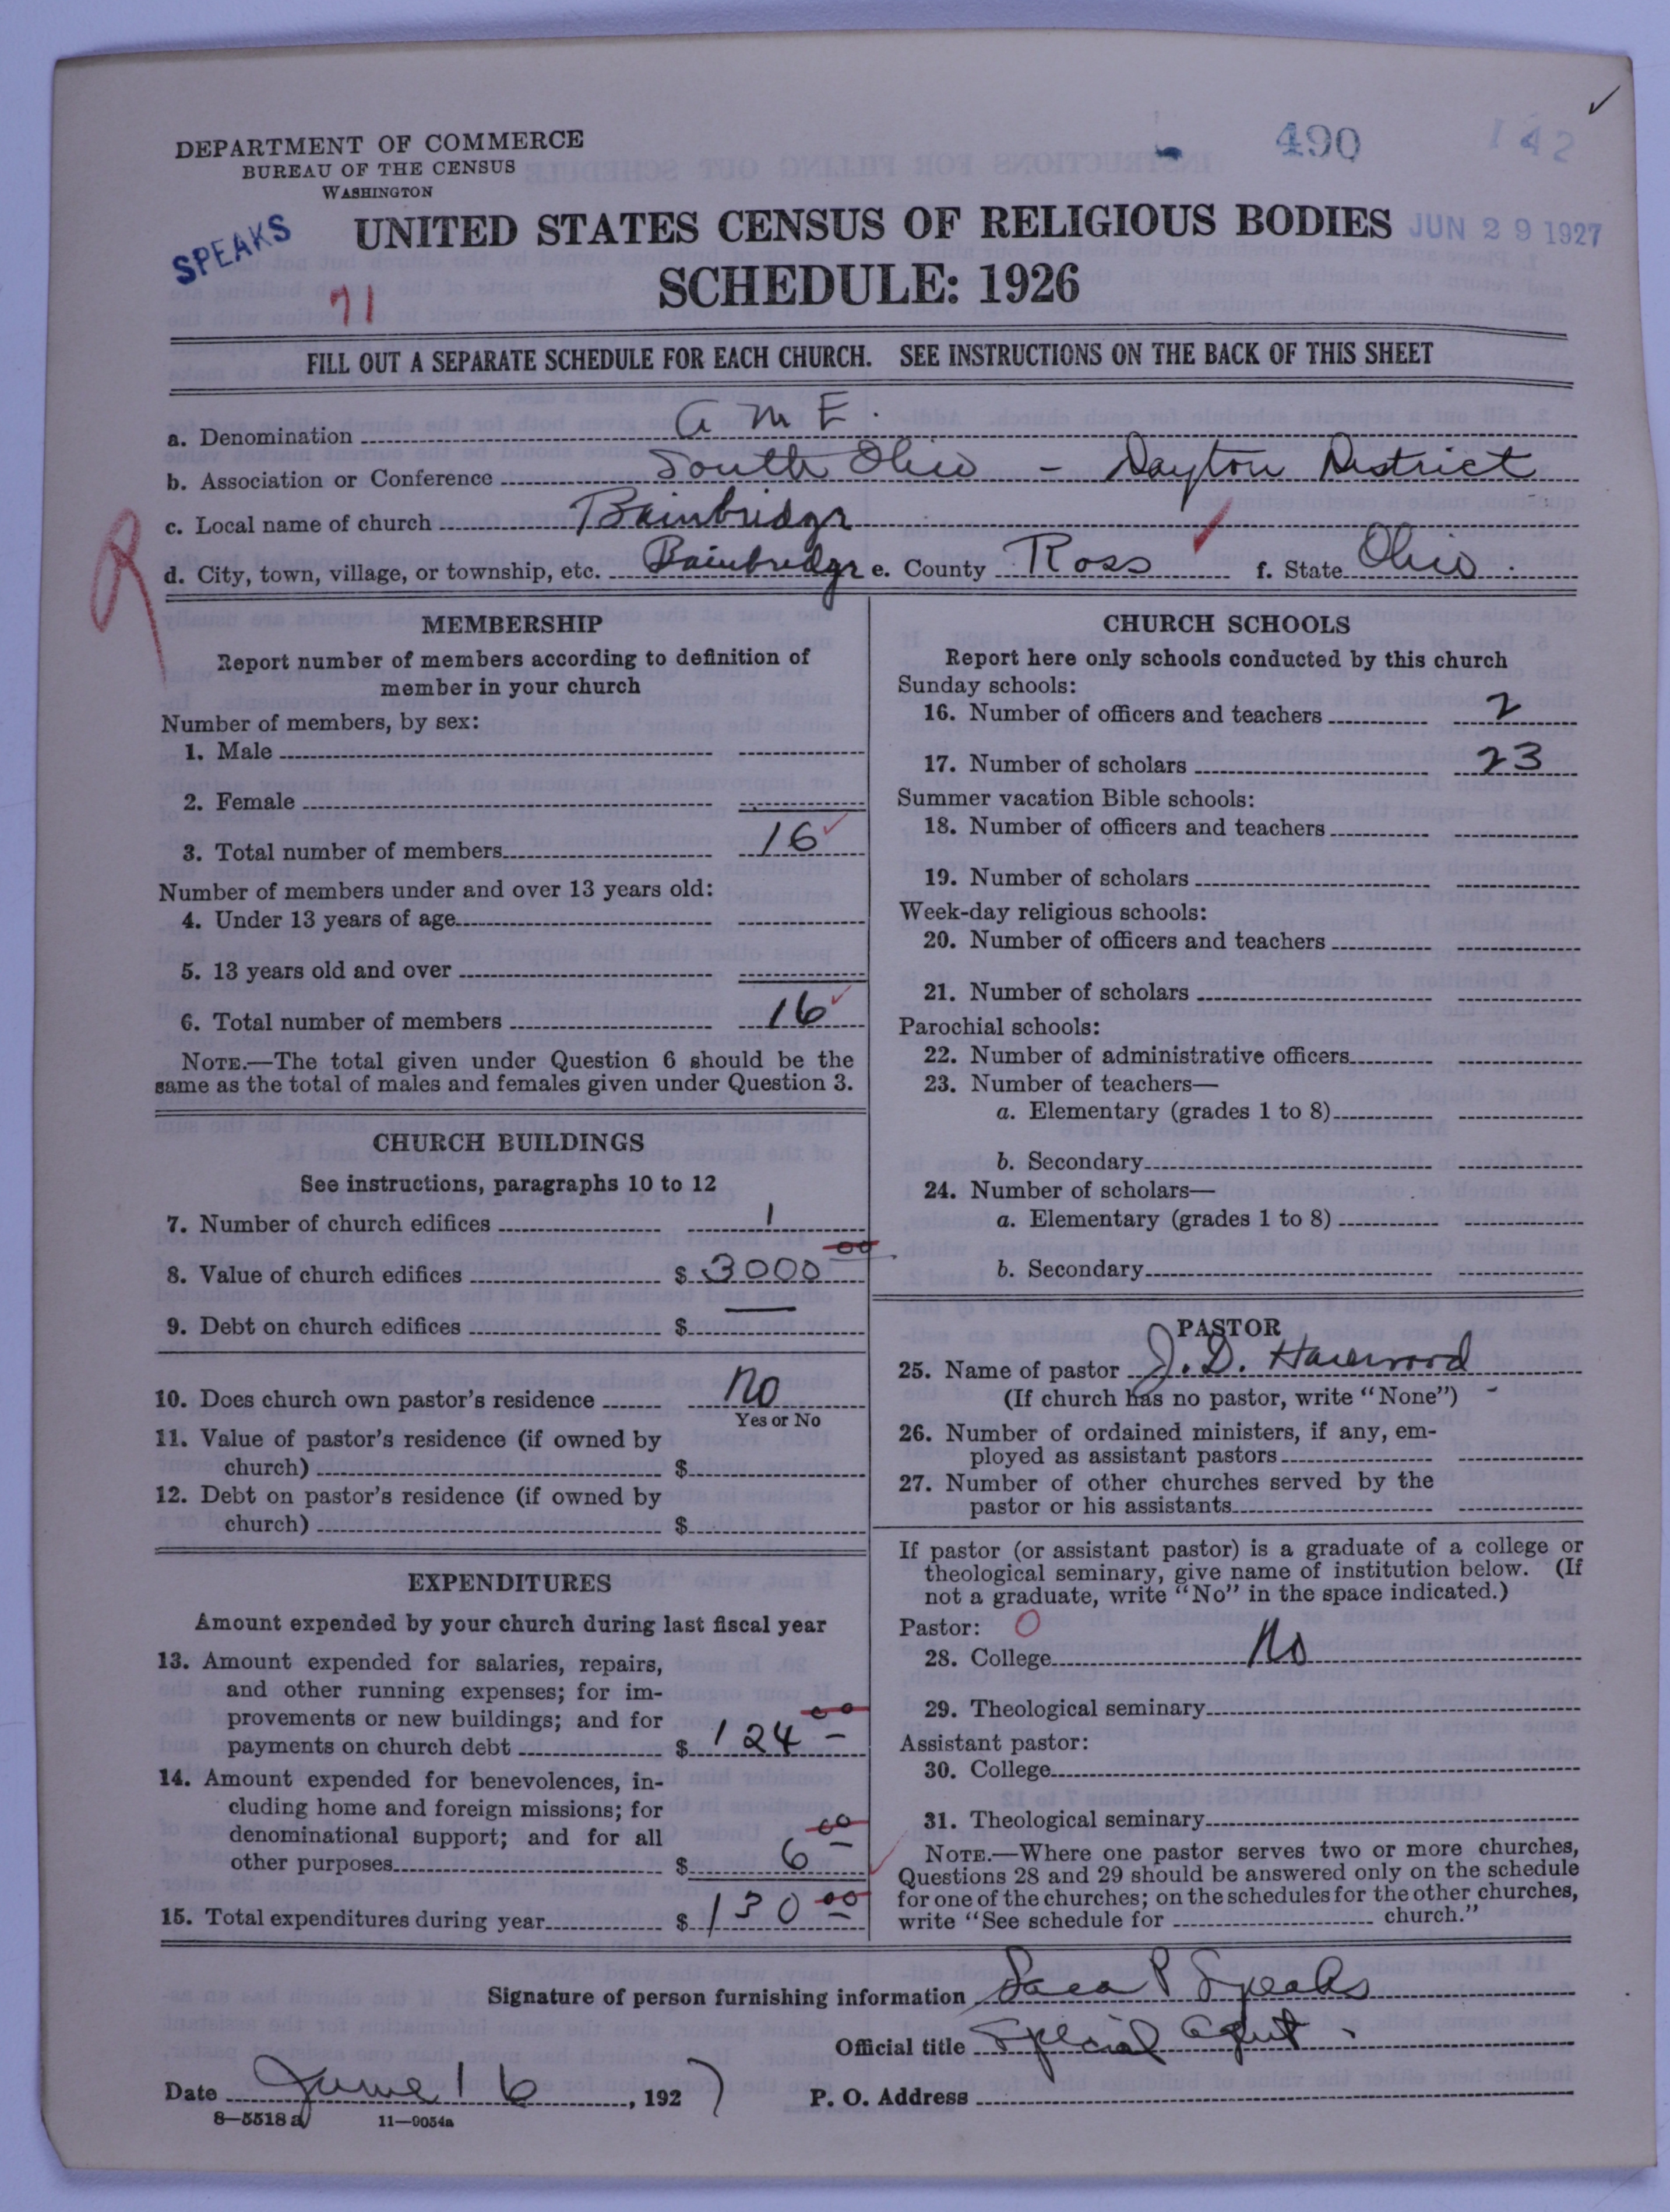 490
142
DEPARTMENT OF COMMERCE
BUREAU OF THE CENSUS
WASHINGTON
SPEAKS
71
UNITED STATES CENSUS OF RELIGIOUS BODIES
JUN 29 1927
SCHEDULE: 1926
FILL OUT A SEPARATE SCHEDULE FOR EACH CHURCH. SEE INSTRUCTIONS ON THE BACK OF THIS SHEET
a. Denomination A M E.
b. Association or Conference South Ohio - Dayton District
c. Local name of church Bainbridge
d. City, town, village, or township, etc. Bainbridge e. County Ross f. State Ohio.
R
MEMBERSHIP
Report number of members according to definition of
member in your church
Number of members, by sex:
1. Male
2. Female
3. Total number of members 16
Number of members under and over 13 years old:
4. Under 13 years of age
5. 13 years old and over
6. Total number of members 16
NOTE.—The total given under Question 6 should be the
same as the total of males and females given under Question 3.
CHURCH BUILDINGS
See instructions, paragraphs 10 to 12
7. Number of church edifices 1
8. Value of church edifices $ 3000 00
9. Debt on church edifices $ —
10. Does church own pastor's residence No
Yes or No
11. Value of pastor's residence (if owned by
church) $
12. Debt on pastor's residence (if owned by
church) $
EXPENDITURES
Amount expended by your church during last fiscal year
13. Amount expended for salaries, repairs,
and other running expenses; for im-
provements or new buildings; and for
payments on church debt $ 124 00
14. Amount expended for benevolences, in-
cluding home and foreign missions; for
denominational support; and for all
other purposes $ 6 00
15. Total expenditures during year $ 130 00
CHURCH SCHOOLS
Report here only schools conducted by this church
Sunday schools:
16. Number of officers and teachers 2
17. Number of scholars 23
Summer vacation Bible schools:
18. Number of officers and teachers
19. Number of scholars
Week-day religious schools:
20. Number of officers and teachers
21. Number of scholars
Parochial schools:
22. Number of administrative officers
23. Number of teachers—
a. Elementary (grades 1 to 8)
b. Secondary
24. Number of scholars—
a. Elementary (grades 1 to 8)
b. Secondary
PASTOR
25. Name of pastor J. D. Harewood
(If church has no pastor, write "None")
26. Number of ordained ministers, if any, em-
ployed as assistant pastors
27. Number of other churches served by the
pastor or his assistants
If pastor (or assistant pastor) is a graduate of a college or
theological seminary, give name of institution below. (If
not a graduate, write "No" in the space indicated.)
Pastor: O
28. College No
29. Theological seminary
Assistant pastor:
30. College
31. Theological seminary
NOTE.—Where one pastor serves two or more churches,
Questions 28 and 29 should be answered only on the schedule
for one of the churches; on the schedules for the other churches,
write "See schedule for church."
Signature of person furnishing information Sara P Speaks
Official title Special Agent.
Date June 16, 1927 P. O. Address
8—5518 a 11—9054a